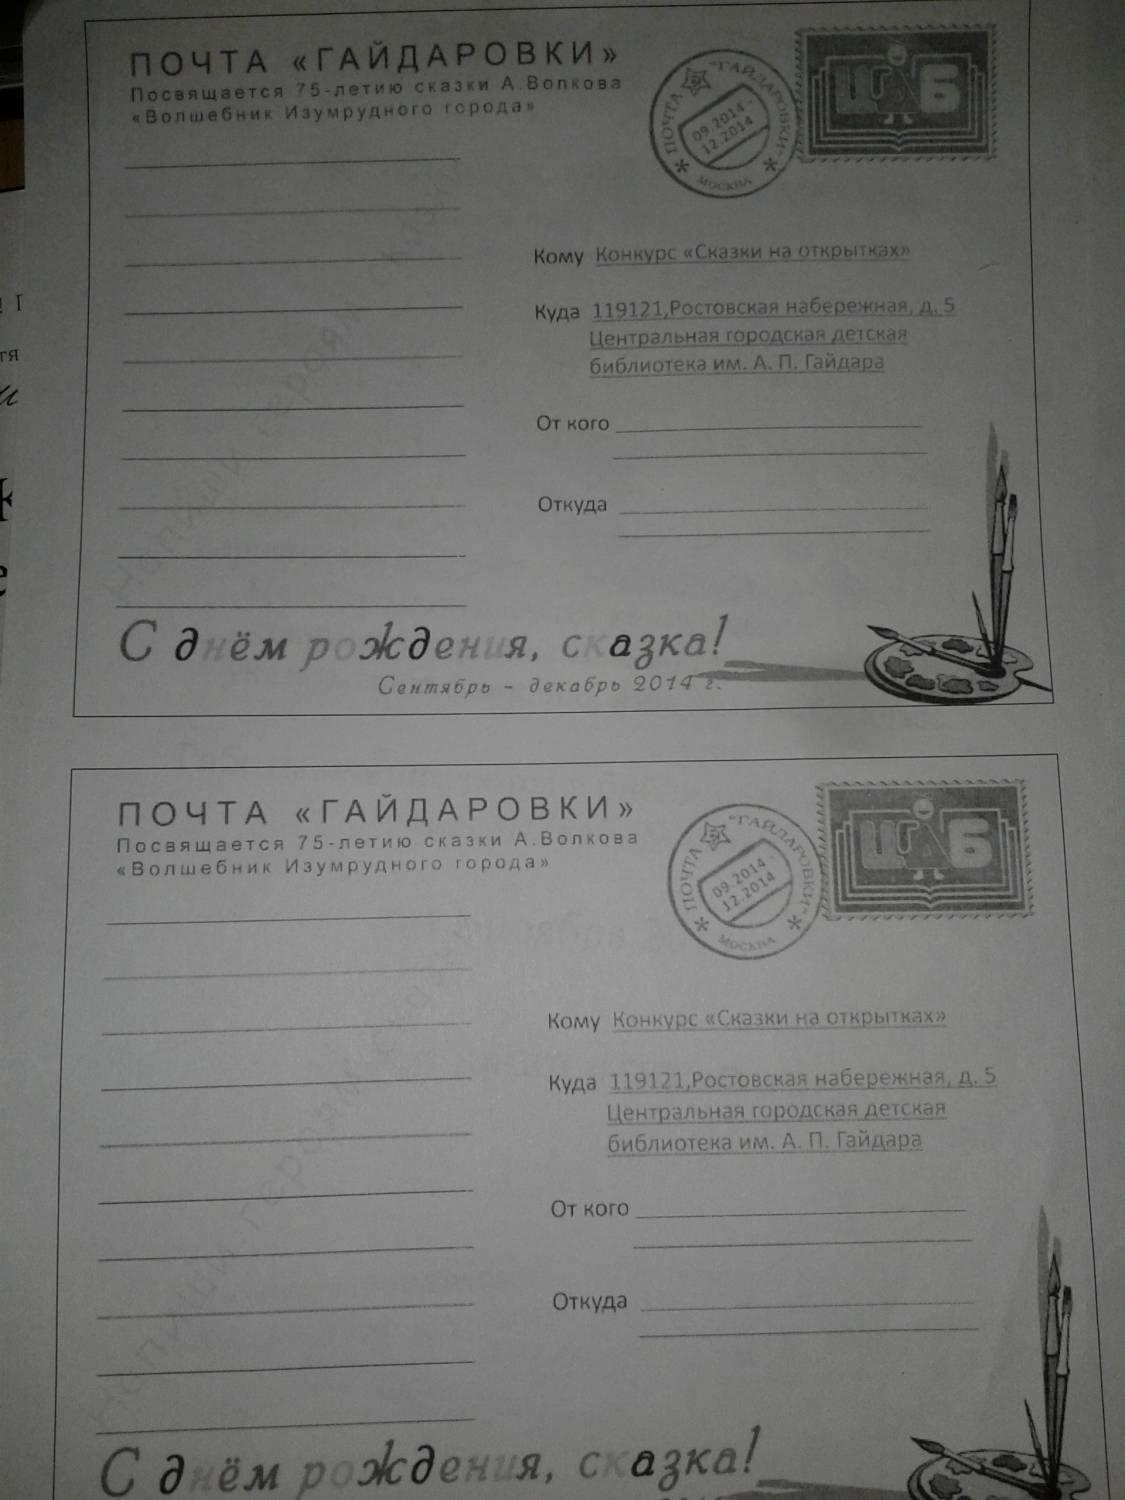 ПОЧТА «ГАЙДАРОВКИ»
Посвящается 75-летию сказки А.Волкова
«Волшебник Изумрудного города»
ПОЧТА "ГАЙДАРОВКИ"
09.2014 -
12.2014
МОСКВА
ЦГДБ
Кому Конкурс «Сказки на открытках»
Куда 119121,Ростовская набережная, д. 5
Центральная городская детская
библиотека им. А. П. Гайдара
От кого
Откуда
Напиши героям сказки
С днём рождения, сказка!
Сентябрь - декабрь 2014 г.
ПОЧТА «ГАЙДАРОВКИ»
Посвящается 75-летию сказки А.Волкова
«Волшебник Изумрудного города»
ПОЧТА "ГАЙДАРОВКИ"
09.2014 -
12.2014
МОСКВА
ЦГДБ
Кому Конкурс «Сказки на открытках»
Куда 119121,Ростовская набережная, д. 5
Центральная городская детская
библиотека им. А. П. Гайдара
От кого
Откуда
Напиши героям сказки
С днём рождения, сказка!